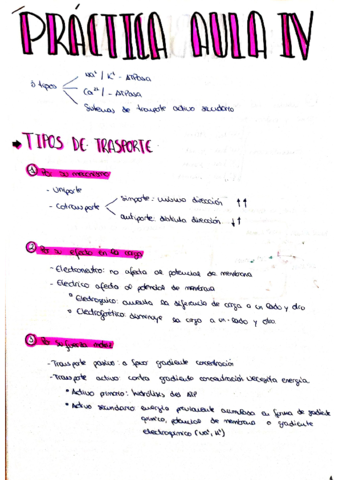 PRÁCTICA AULA IV
Na⁺/K⁺ - ATPasa
tipos
Ca²⁺ - ATPasa
Sistemas de trasporte activo secundario
→ TIPOS DE TRASPORTE
① Por su mecanismo
- Uniporte
simporte: misma dirección ↑↑
- Cotransporte
antiporte: distinta dirección ↓↑
② Por su efecto en la carga
- Electroneutro: no afecta al potencial de membrana
- Eléctrico afecta al potencial de membrana
• Electrogénico: aumenta la diferencia de carga a un lado y otro
• Electroforético disminuye la carga a un lado y otro.
③ Por su fuente
- Transporte pasivo: a favor gradiente concentración
- Transporte activo contra gradiente concentración necesita energía
• Activo primario: hidrólisis del ATP
• Activo secundario energía previamente acumulada en forma de gradiente
químico, potencial de membrana o gradiente
electroquímico (Na⁺, K⁺)